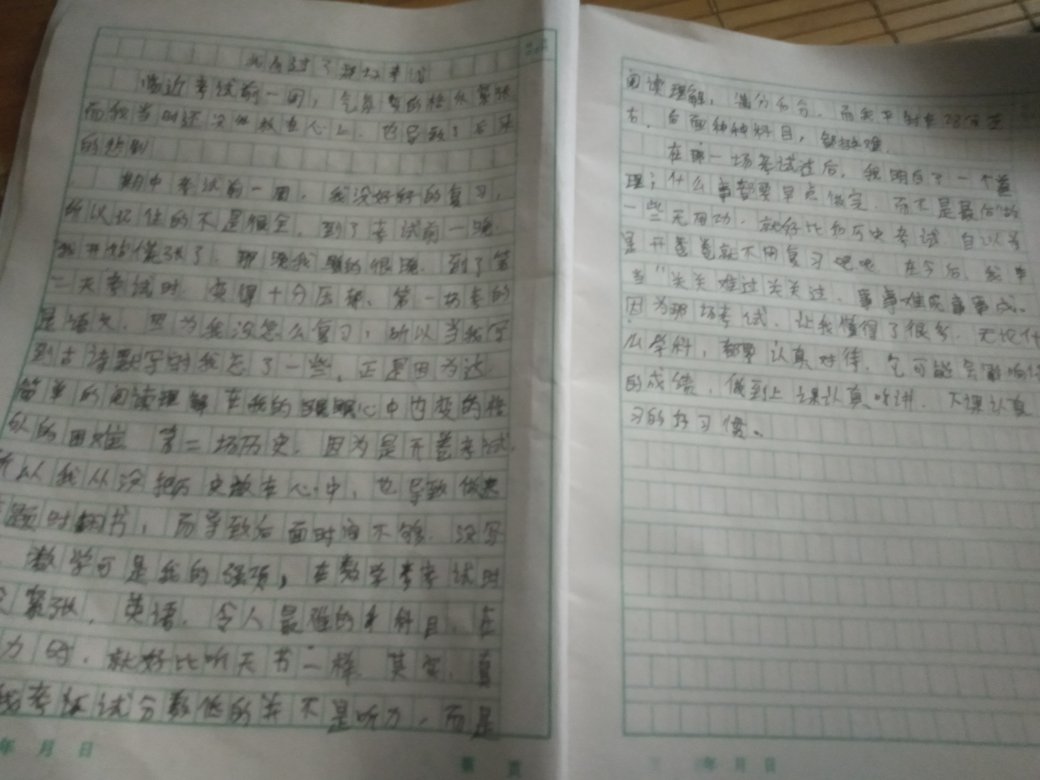 临近考试前一周，气氛变的格外紧张
而我当时还没放在心上，也导致了后来
的悲剧
期中考试前一周，我没好好的复习，
所以记住的不是很全，到了考试前一晚
我开始慌张了，那晚我睡的很晚，到了第
二天考试时，变得十分压抑，第一场考的
是语文，因为我没怎么复习，所以当我写
到古诗默写时我忘了一些，正是因为这
简单的阅读理解在我的眼心中也变的格
外的困难 第二场历史，因为是开卷考试
所以我从没把历史放在心中，也导致做
题时翻书，而导致后面时间不够，没写
数学可是我的强项，在数学考试时
紧张，英语，令人最难的科目，在
力时，就好比听天书一样，其实，真
考试分数低的并不是听力，而是
阅读理解，满分 分，而我平时在 左
右，后面种种科目，都挺难，
在那一场考试过后，我明白了一个道
理；什么事都要早点做完，而不是最后的
一些无用功，就好比如历史考试，自以为
是开卷卷就不用复习吧吧，在今后，我
当"关关难过关关过，事事难成事事成。
因为那场考试，让我懂得了很多，无论什
么学科，都要认真对待，它可能会影响
的成绩，做到上课认真听讲，下课认真
习的好习惯。
年 月 日
第 页
年 月 日